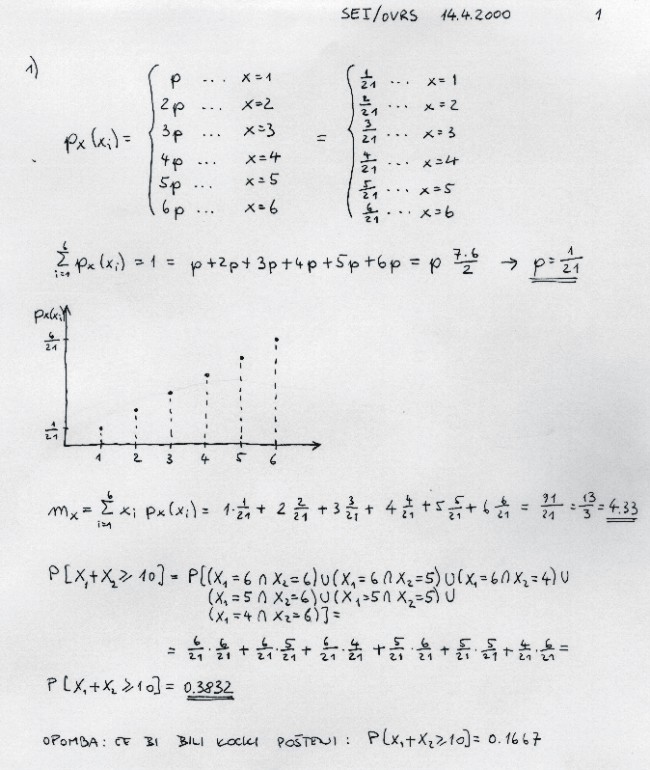 SEI/OVRS 14.4.2000 1
1)
p_X(x_i) = { p ... x=1 = { 1/21 ... x=1
2p ... x=2 2/21 ... x=2
3p ... x=3 3/21 ... x=3
4p ... x=4 4/21 ... x=4
5p ... x=5 5/21 ... x=5
6p ... x=6 6/21 ... x=6
6 Σ i=1 p_X(x_i) = 1 = p+2p+3p+4p+5p+6p = p 7·6/2 → p = 1/21
p_X(x_i)
6/21
1/21
1 2 3 4 5 6
m_X = 6 Σ i=1 x_i p_X(x_i) = 1·1/21 + 2 2/21 + 3 3/21 + 4 4/21 + 5 5/21 + 6 6/21 = 91/21 = 13/3 = 4.33
P[X₁+X₂ ≥ 10] = P[(X₁=6 ∩ X₂=6) ∪ (X₁=6 ∩ X₂=5) ∪ (X₁=6 ∩ X₂=4) ∪
(X₁=5 ∩ X₂=6) ∪ (X₁=5 ∩ X₂=5) ∪
(X₁=4 ∩ X₂=6)] =
= 6/21 · 6/21 + 6/21 · 5/21 + 6/21 · 4/21 + 5/21 · 6/21 + 5/21 · 5/21 + 4/21 · 6/21 =
P[X₁+X₂ ≥ 10] = 0.3832
OPOMBA: ČE BI BILI KOCKI POŠTENI: P[X₁+X₂ ≥ 10] = 0.1667